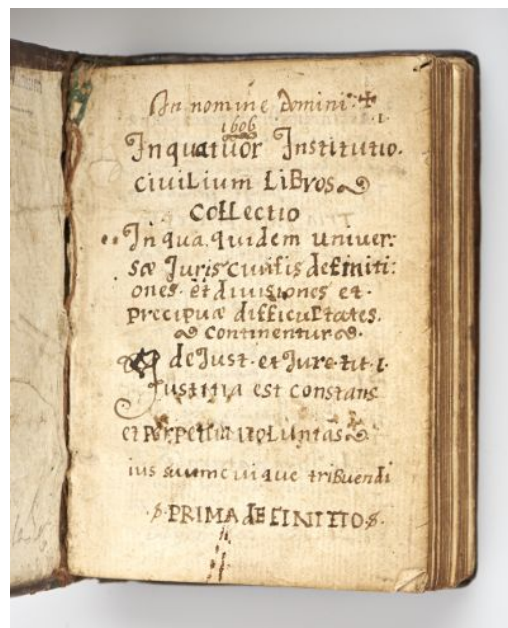 In nomine Domini ✝
1606
1.
In quatuor Institutio.
civilium Libros
collectio
In qua quidem univer:
sæ Juris civilis definiti:
ones et divisiones et
precipuæ difficultates.
continentur
de Just. et Jure tit. 1.
Justitia est constans
et perpetua voluntas
ius suum cuique tribuendi
PRIMA dEFINITIO